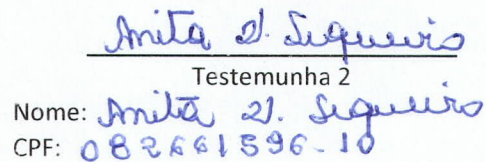 Anita D. Siqueira
Testemunha 2
Nome: Anita D. Siqueira
CPF: 082661596-10